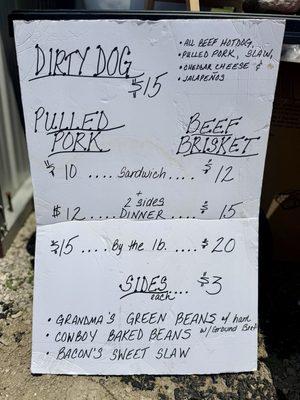 DIRTY DOG
$15
• ALL BEEF HOTDOG,
• PULLED PORK, SLAW,
• CHEDDAR CHEESE &
• JALAPEÑOS
PULLED PORK
BEEF BRISKET
$10 .... Sandwich .... $12
+
2 sides
$12 ..... DINNER ..... $15
$15 .... By the lb. .... $20
SIDES .... $3
each
• GRANDMA'S GREEN BEANS w/ ham
• COWBOY BAKED BEANS w/Ground Beef
• BACON'S SWEET SLAW